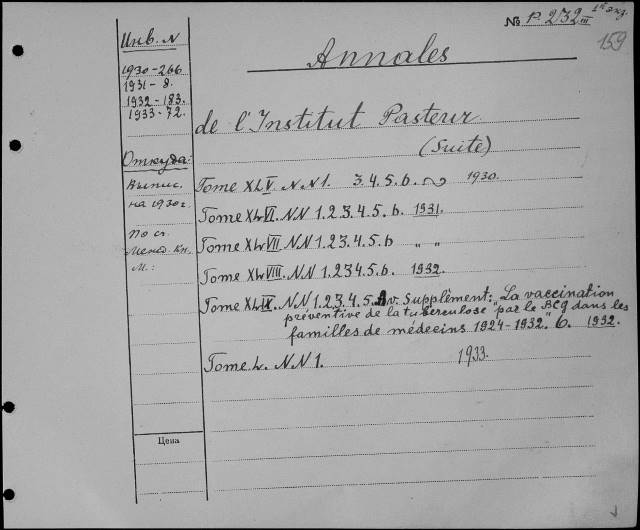 № P. 232 III 1й экз.
159
Инв. N
Annales
1930-266
1931-8.
1932-183.
1933-72.
de l'Institut Pasteur
(Suite)
Откуда:
Выпис.
на 1930г.
Tome XLV. NN 1. 3.4.5.6. 1930.
Tome XLVI. NN 1.2.3.4.5.6. 1931.
По ст.
Менд. Кн.
М.:
Tome XLVII. NN 1.2.3.4.5.6 " "
Tome XLVIII. NN 1.2.3.4.5.6. 1932.
Tome XLIX. NN 1.2.3.4.5. Av. Supplèment: "La vaccination
préventive de la tuberculose par le BCG dans les
familles de médecins 1924-1932." 6. 1932.
Tome L. NN 1. 1933.
Цена